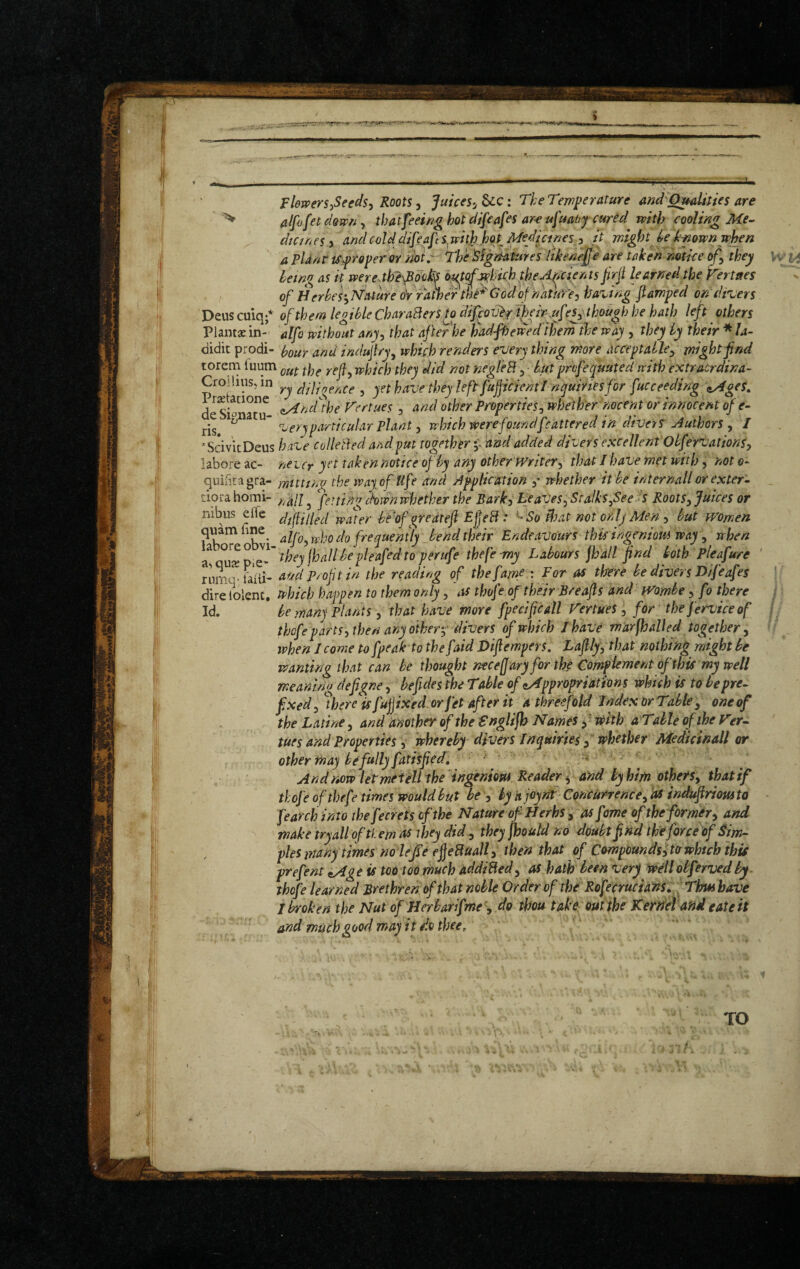 Flowers,Seeds, Roots, Juices, &c: The Temperature and Qualities are
alſo ſet down, that ſeeing hot diſeaſes are uſually cured with cooling Me-
dicines, and cold diſeaſes with hot Medicines, it might be known when
a Plant is proper or not. The Signatures likeneſſe are taken notice of, they
being as it were the Books out of which the Ancients firſt learned the Vertues
of Herbes; Nature or rather the God of nature, having ſtamped on divers
of them legible Characters to diſcover their uſes, though he hath left others
alſo without any, that after he had ſhewed them the way, they by their * la-
bour and induſtry, which renders every thing more acceptable, might find
out the reſt, which they did not neglect, but proſequuted with extraordina-
ry diligence, yet have they left ſufficient Inquiries for ſucceeding Ages.
And the Vertues, and other Properties, whether nocent or innocent of e-
very particular Plant, which were found ſcattered in divers Authors, I
have collected and put together; and added divers excellent Obſervations,
never yet taken notice of by any other Writer, that I have met with, not o-
mitting the way of Uſe and Application; whether it be internall or exter-
nall, ſetting down whether the Bark, Leaves, Stalks, See 's Roots, Juices or
diſtilled water be of greateſt Effect: So that not only Men, but Women
alſo, who do frequently bend their Endeavours this ingenious way, when
they ſhall be pleaſed to peruſe theſe my Labours ſhall find both Pleaſure
and Profit in the reading of the ſame: For as there be divers Diſeaſes
which happen to them only, as thoſe of their Breaſts and Wombe, ſo there
be many Plants, that have more ſpecificall Vertues, for the ſervice of
thoſe parts, then any other; divers of which I have marſhalled together,
when I come to ſpeak to the ſaid Diſtempers. Laſtly, that nothing might be
wanting that can be thought neceſſary for the Complement of this my well
meaning deſigne, beſides the Table of Appropriations which is to be pre-
fixed, there is ſuffixed or ſet after it a threefold Index or Table, one of
the Latine, and another of the Engliſh Names, with a Table of the Ver-
tues and Properties, whereby divers Inquiries, whether Medicinall or
other may be fully ſatisfied.
And now let me tell the ingenious Reader, and by him others, that if
thoſe of theſe times would but be, by a joynt Concurrence, as induſtrious to
ſearch into the ſecrets of the Nature of Herbs, as ſome of the former, and
make tryall of them as they did, they ſhould no doubt find the force of Sim-
ples many times no leſſe effectuall, then that of Compounds, to which this
preſent Age is too too much addicted, as hath been very well obſerved by
thoſe learned Brethren of that noble Order of the Roſecrucians. Thus have
I broken the Nut of Herbariſme, do thou take out the Kernel and eate it
and much good may it do thee.
Deus cuiq;*
Plantæ in-
didit prodi-
torem ſuum
Crollius, in
Præfatione
de Signatu-
ris.
*Scivit Deus
labore ac-
quiſita gra-
tiora homi-
nibus eſſe
quàm ſine
labore obvi-
a, quæ ple-
rumq; faſti-
dire ſolent.
Id.
TO